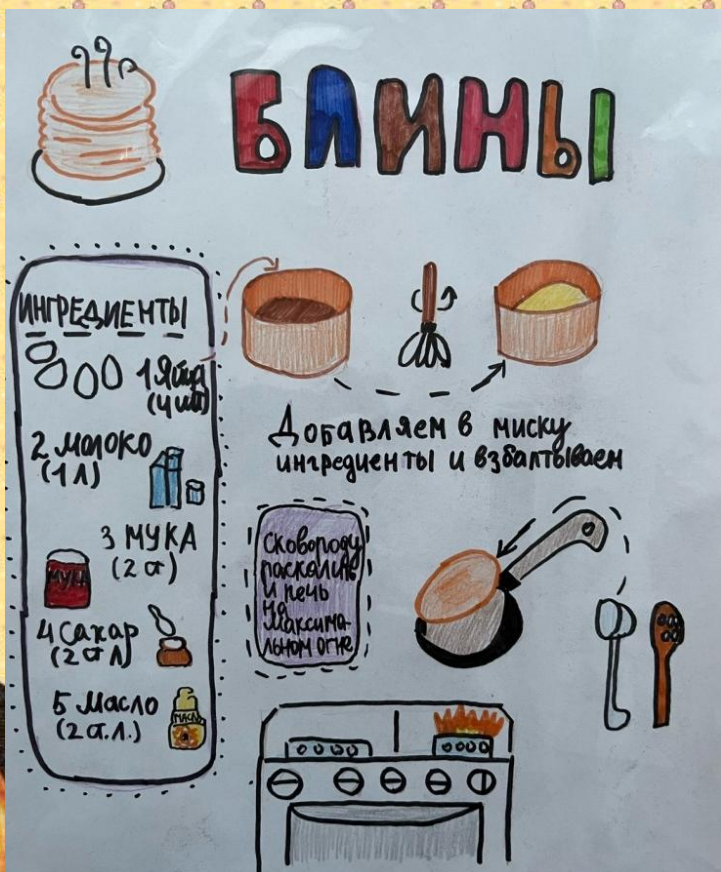 БЛИНЫ
ИНГРЕДИЕНТЫ
1 Яйца
(4 шт)
2 молоко
(1 л)
3 МУКА
(2 ст)
МУКА
4 Сахар
(2 ст л)
5 Масло
(2 ст. л.)
МАСЛО
Добавляем в миску
ингредиенты и взбалтываем
Сковороду
раскалить
и печь
на
максима-
льном огне